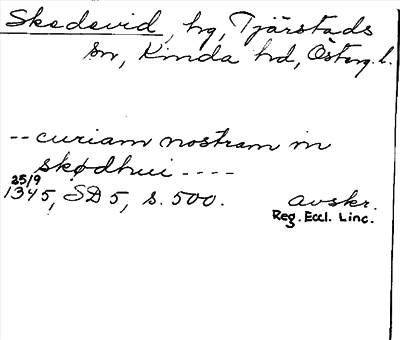 Skedevid, hg, Tjärstads
sn, Kinda hd, Österg. l.
-- curiam nostram in
skødhui ----
25/9
1345, SD 5, s. 500. avskr.
Reg. Eccl. Linc.